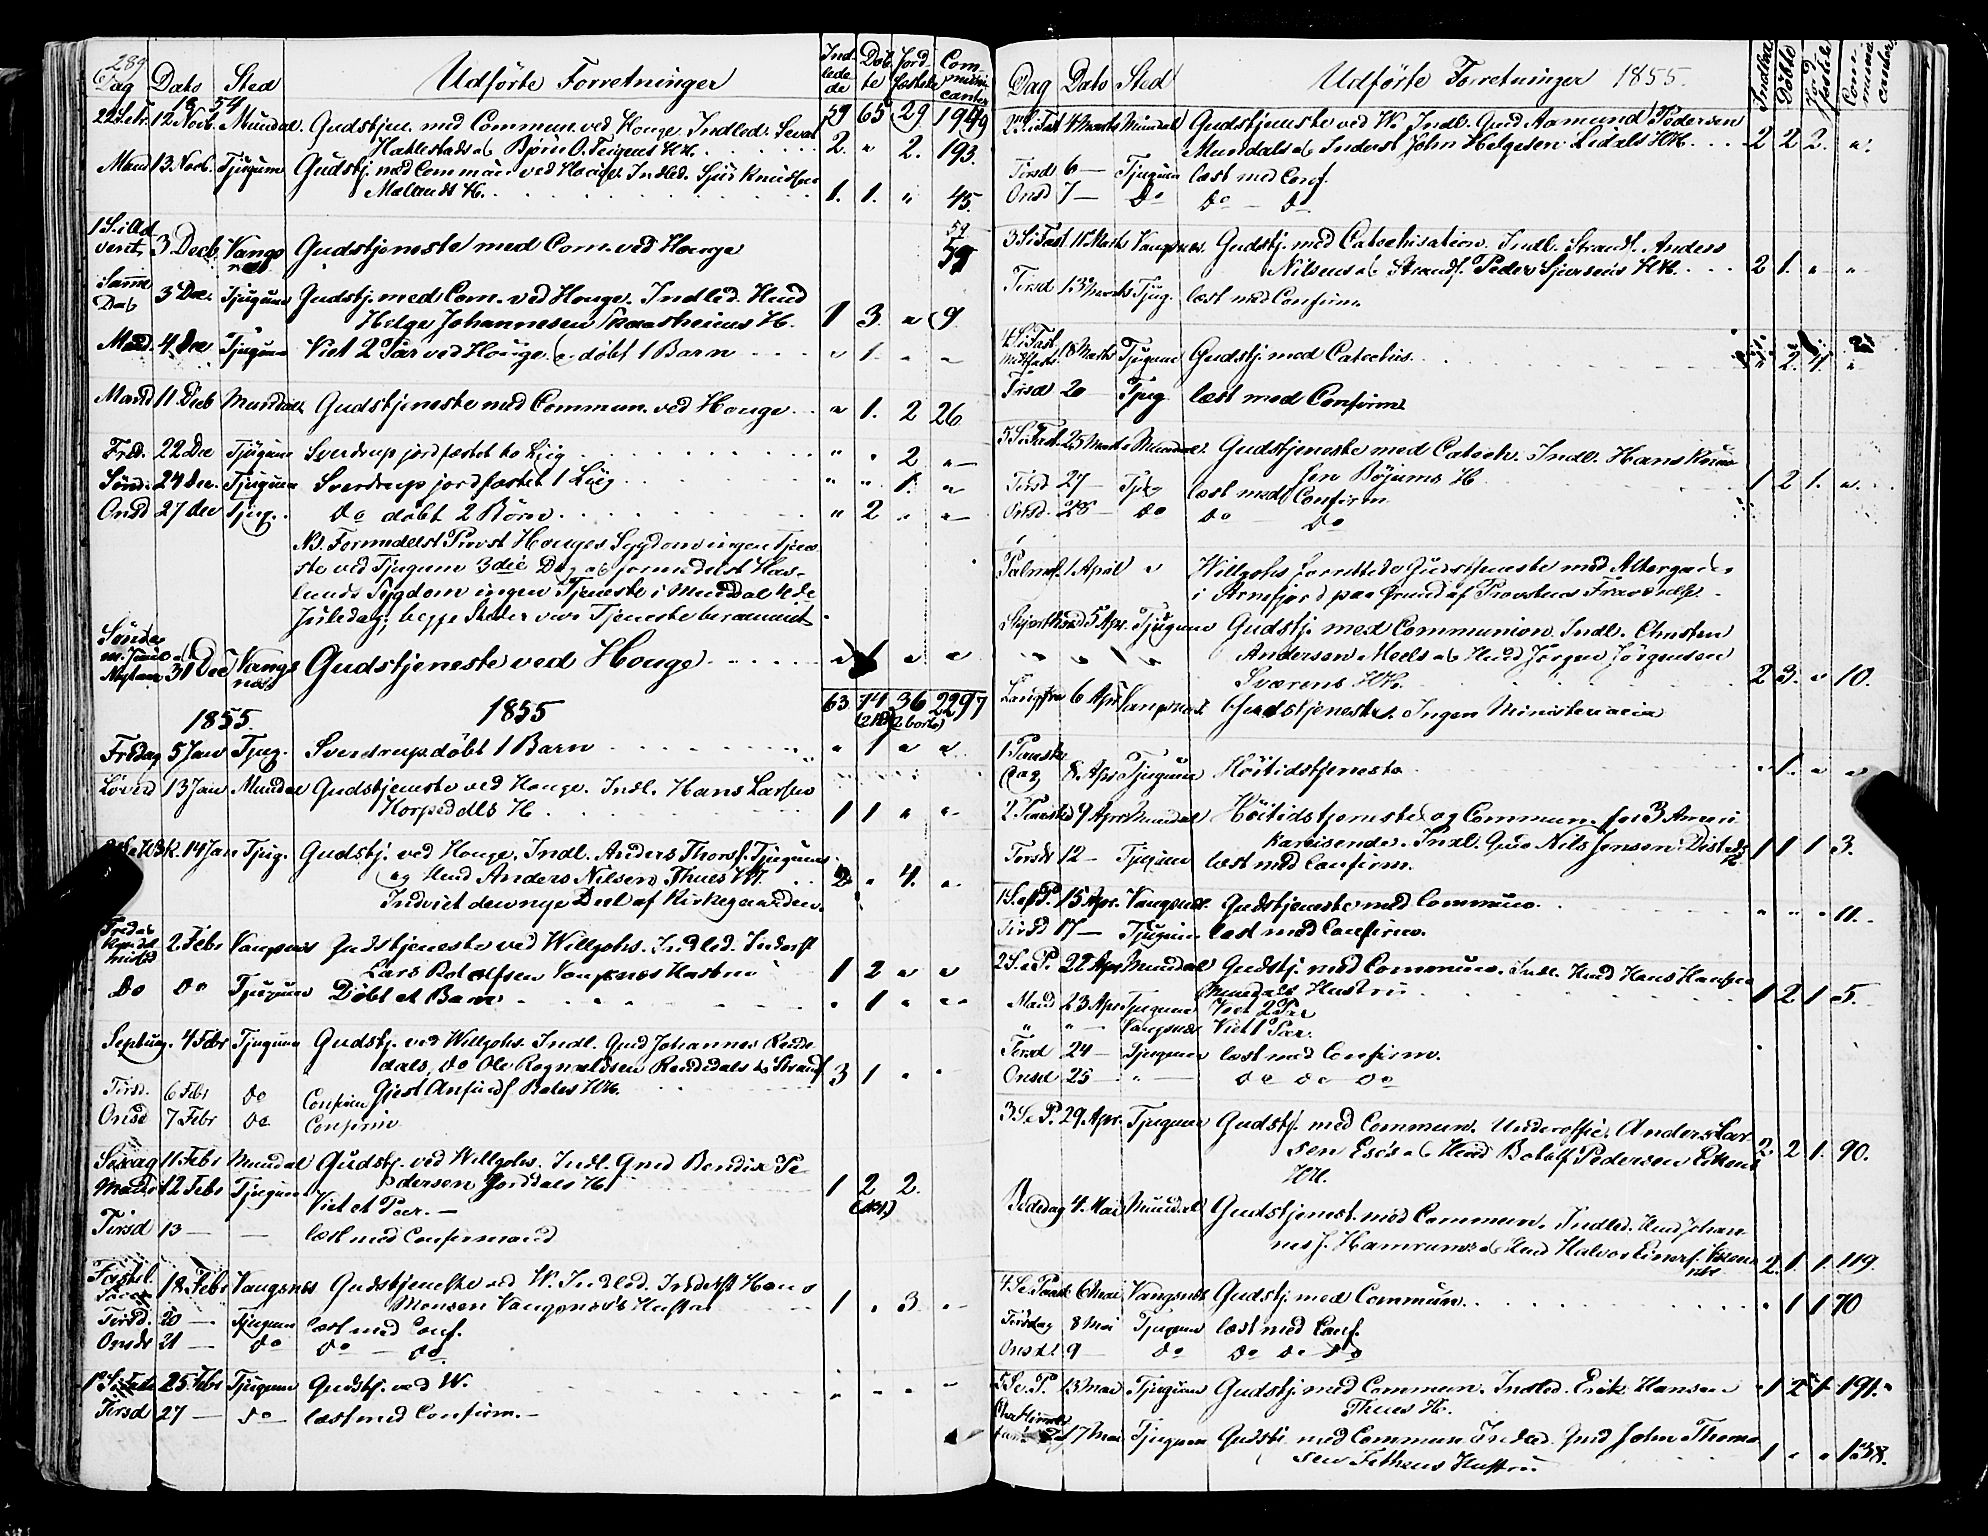 289
Dag Dato Sted Udförte Forretninger Indledede Döbte Jordfæstede Communicanter
1854
22 S.e.Tr. 12 Novb. Mundal. Gudstjen. med Commun. ved Houge. Indled. 59 65 29 1949
Haklestads og Björn O. Teigens HH. 2. " 2. 193.
Mand 13. Novb. Tjugum Gudstj. med Commun ved Houge. Indled. Sjur Knudsen
Mælands H. 1. 1. " 45.
1 S. i Advent 3 Decb. Vangsnæs Gudstjeneste med Com. ved Houge 59
Samme Dag 3 Dec. Tjugum Gudstj. med Com. ved Houge. Indled. Hmd
Helge Johannesen H. 1 3. " 9.
Mand. 4 Dec Tjugum Viet 2 Par ved Houge. og döbt 1 Barn " 1. " "
Mand 11 Decb Mundal Gudstjeneste med Commun. ved Houge " 1. 2 26
Fred. 22 Dec Tjugum Sverdrup jordfæstet to Liig " " 2 "
Sönd. 24 Dec. Tjugum Sverdrup jordfæstet 1 Liig " " 1. "
Onsd 27 Dec Tjug. do döbt 2 Börn " 2 " "
NB. Formedelst Provst Houges Sygdom ingen Tjene
ste ved Tjugum 3die Dag og formedelst Has-
lunds Sygdom ingen Tjeneste i Mundal 4de
Juledag; begge Steder var Tjeneste berammet.
Söndag m. Juul og Nytaar 31 Dec Vangsnæs Gudstjeneste ved Houge " 1 " "
63 74 36 2297
1855 1855
Fredag 5 Jan Tjug. Sverdrup döbt 1 Barn " 1 " "
Löverd 13 Jan Mundal Gudstjeneste ved Houge. Indl. Hans Larsen
Horpedals H. 1 1 " "
14 Jan Tjug. Gudstj. ved Houge. Indl. Anders Thors. Tjugums
og Hmd Anders Nilsen Thues HH. 2 " 4. "
Indviet den nye Deel af Kirkegaarden.
Fredag 2 Febr Vangsnæs Gudstjeneste ved Willgohs. Indled. Inderst
Lars Rolalfsen Vangsnæs Hustru 1 2 " "
Do Do Tjugum Döbt et Barn " 1 " "
Septuag. 4 Febr Tjugum Gudstj. ved Willgohs. Indl. Gmd Johannes Rende
dals, do Ole Rognaldsen Rendedals & Strand.
Gjest Anfinds. Bales HH. 3 1 " "
Tirsd. 6 Febr do Confirm
Onsd 7 Febr do Confirm
11 Febr Mundal Gudstj. ved Willgohs. Indl. Gmd Bendix Pe
dersen Jorddals H. 1 2 2.
Mand. 12 Febr Tjugum Viet et Par. —
Tirsd 13 — — læst med Confirmand
Fastel. 18 Febr Vangsnæs Gudstjeneste ved W. Indled. Inderst Hans
Monsen Vangsnæs's Hustru 1 " 3 "
Tirsd. 20 — Tjugum læst med Conf.
Onsd 21 — do do — do
25 Febr Tjugum Gudstj. ved W. " " " "
Tirsd 27 — do læst med Confirm. —
Dag Dato Sted Udförte Forretninger 1855. Indledte Döbte Jordfæstede Communicanter
2 S. i Fast 4 Marts Mundal Gudstjeneste ved W. Indl. Gmd Aamund Pedersen
Mundals og Inderst John Helgesen Lidals HH. 2 2 2. "
Tirsd 6 — Tjugum læst med Conf.
Onsd 7 — do do — do
3 S. i Fast 11 Marts Vangsnæs Gudstj. med Catechisation. Indl. Strands. Anders
Nilsens og Strands. Peder Sjursens HH. 2 1. " "
Tirsd 13 Marts Tjug. læst med Confirm.
4 S. i Fast Midfaste 18 Marts Tjugum Gudstj med Catechis. " 2. 4. "
Tirsd 20 — Tjug læst med Confirm
5 S. i Fast 25 Marts Mundal Gudstjeneste med Catech. Indl. Hans Knud
sen Böjums H. 1 2 1. "
Tirsd 27 — Tjug læst med Confirm
Onsd. 28 — do do do
Palmes. 1 April " Willgohs forrettede Gudstjeneste med Altergang
i Arnefjord paa Grund af Provstens Fravær
Skjærthorsd 5 Apr. Tjugum Gudstj. med Communion. Indl. Christen
Andersen Meels og Hmd Jörgen Jörgensen
Sværens HH. 2 3. " 10.
Langfre 6 Apr Vangsnæs Gudstjeneste. Ingen Ministerialia
1 Paaske Dag 8 Apr Tjugum Höitidstjeneste " 1. " "
2 Paaskd 9 Apr Mundal Höitidstjeneste og Commun. for 3 Ameri
kareisende. Indl. Gmd Nils Jensen Distads H. 1 1 1 3.
Torsd 12 — Tjugum læst med Confirm.
1 S. e. P. 15 Apr. Vangsnæs Gudstjeneste med Commun. " " " 11.
Tirsd 17 — Tjugum læst med Confirm.
2 S. e. P. 22 Apr Mundal Gudstj. med Commun. Indl. Hmd Hans Hansen
Mundals Hustru 1 2 1 5.
Mand 23 Apr Tjugum Viet 2 Par
" " — Vangsnæs Viet 1 Par.
Tirsd 24 — Tjugum læst med Confirm.
Onsd 25 — " — do do do
3 S. e. P. 29 Apr. Tjugum Gudstj. med Commun. Underoffic. Anders Lar
sen Eses og Hmd Botolf Pedersen
HH. 2 2 1. 90.
Bededag 4. Mai Mundal Gudstjenest. med Commun. Indled. Hmd Johan-
nes J. Hamrums og Hmd Halvor Einers. 2. 1. 1. 119.
4 S. e. Paask 6 Mai Vangsnæs Gudstj. med Commun. " 1 1 70
Tirsdag 8 Mai Tjugum læst med Conf.
Onsd. 9 — do do do do
5 S. e. P. 13 Mai Tjugum Gudstj. med Commun. Indled. Erik Hansen
Thues H. 1 2 1 191.
Chr. Himmelfart 17 Mai Tjugum Gudstj. med Commun. Indled. Gmd John Thoma
sen Fethens Hustru 1 " " 138.